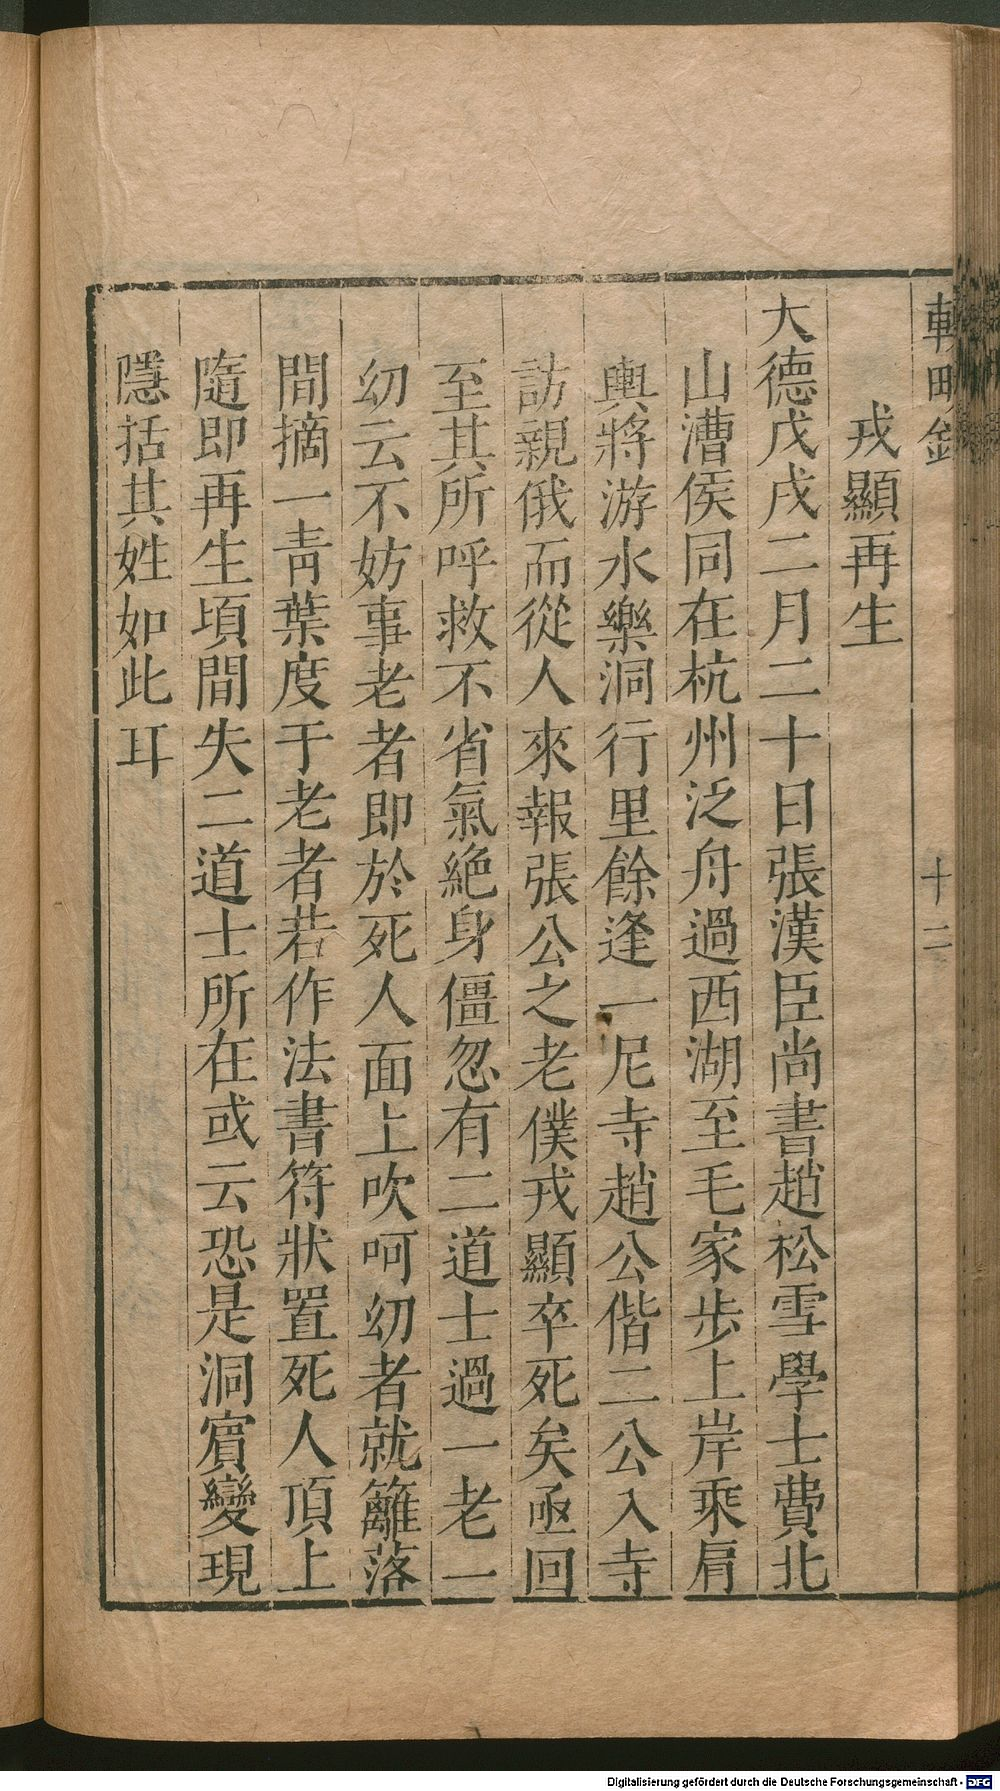 戎顯再生
大德戊戌二月二十日張漢臣尚書趙松雪學士費北
山漕侯同在杭州泛舟過西湖至毛家步上岸乘肩
輿將游水樂洞行里餘逢一尼寺趙公偕二公入寺
訪親俄而從人來報張公之老僕戎顯卒死矣亟回
至其所呼救不省氣絶身僵忽有二道士過一老一
幼云不妨事老者即於死人面上吹呵幼者就籬落
間摘一青葉度于老者若作法書符狀置死人頂上
隨即再生頃間失二道士所在或云恐是洞賓變現
隱括其姓如此耳
十二
Digitalisierung gefördert durch die Deutsche Forschungsgemeinschaft - DFG